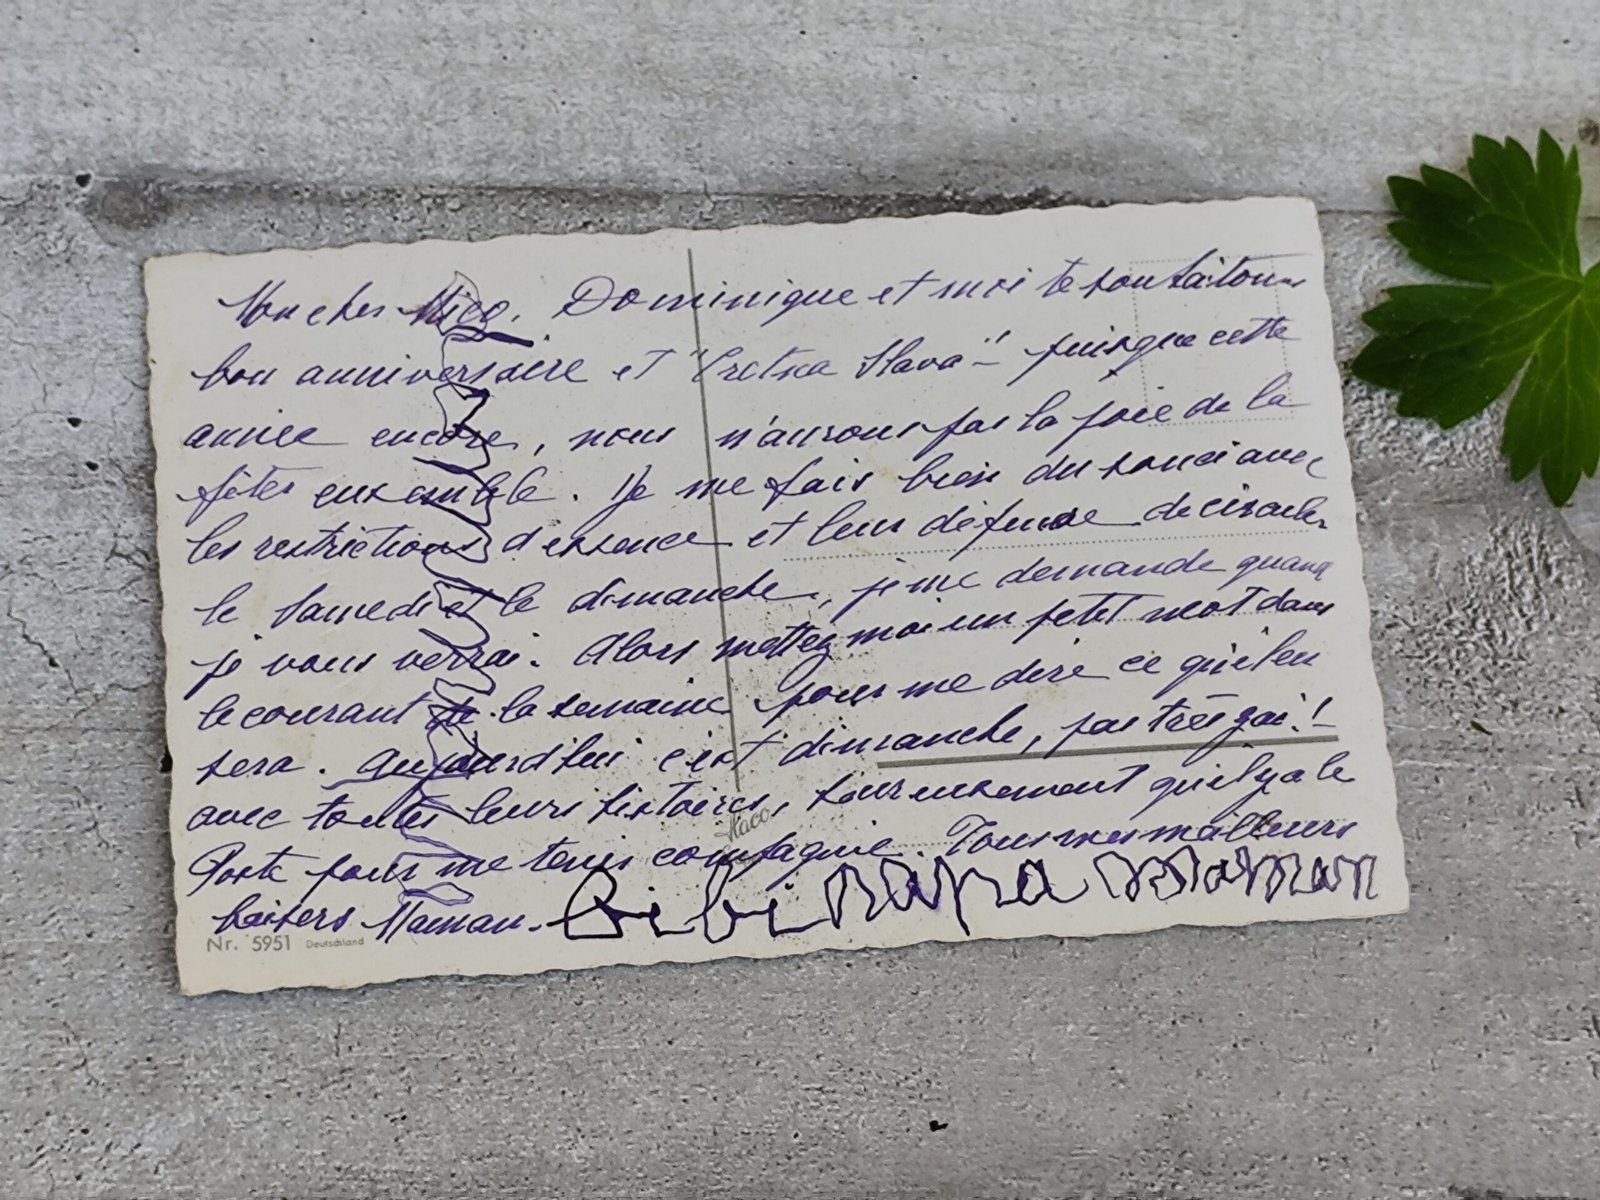 Mon cher Mico. Dominique et moi te souhaitons
bon anniversaire et "Sretna Slava"! puisque cette
année encore, nous n'aurons pas la joie de la
fêter ensemble. Je me fais bien du souci avec
les restrictions d'essence et leur défense de circuler
le Samedi et le dimanche, je me demande quand
je vous verrai. Alors mettez moi un petit mot dans
le courant de la semaine pour me dire ce qu'il en
sera. Aujourd'hui c'est dimanche, pas très gai!
avec toutes leurs histoires, heureusement qu'il y a le
Poste pour me tenir compagnie. Tous mes meilleurs
baisers Maman. Bibi papa maman
Haco
Nr. 5951 Deutschland